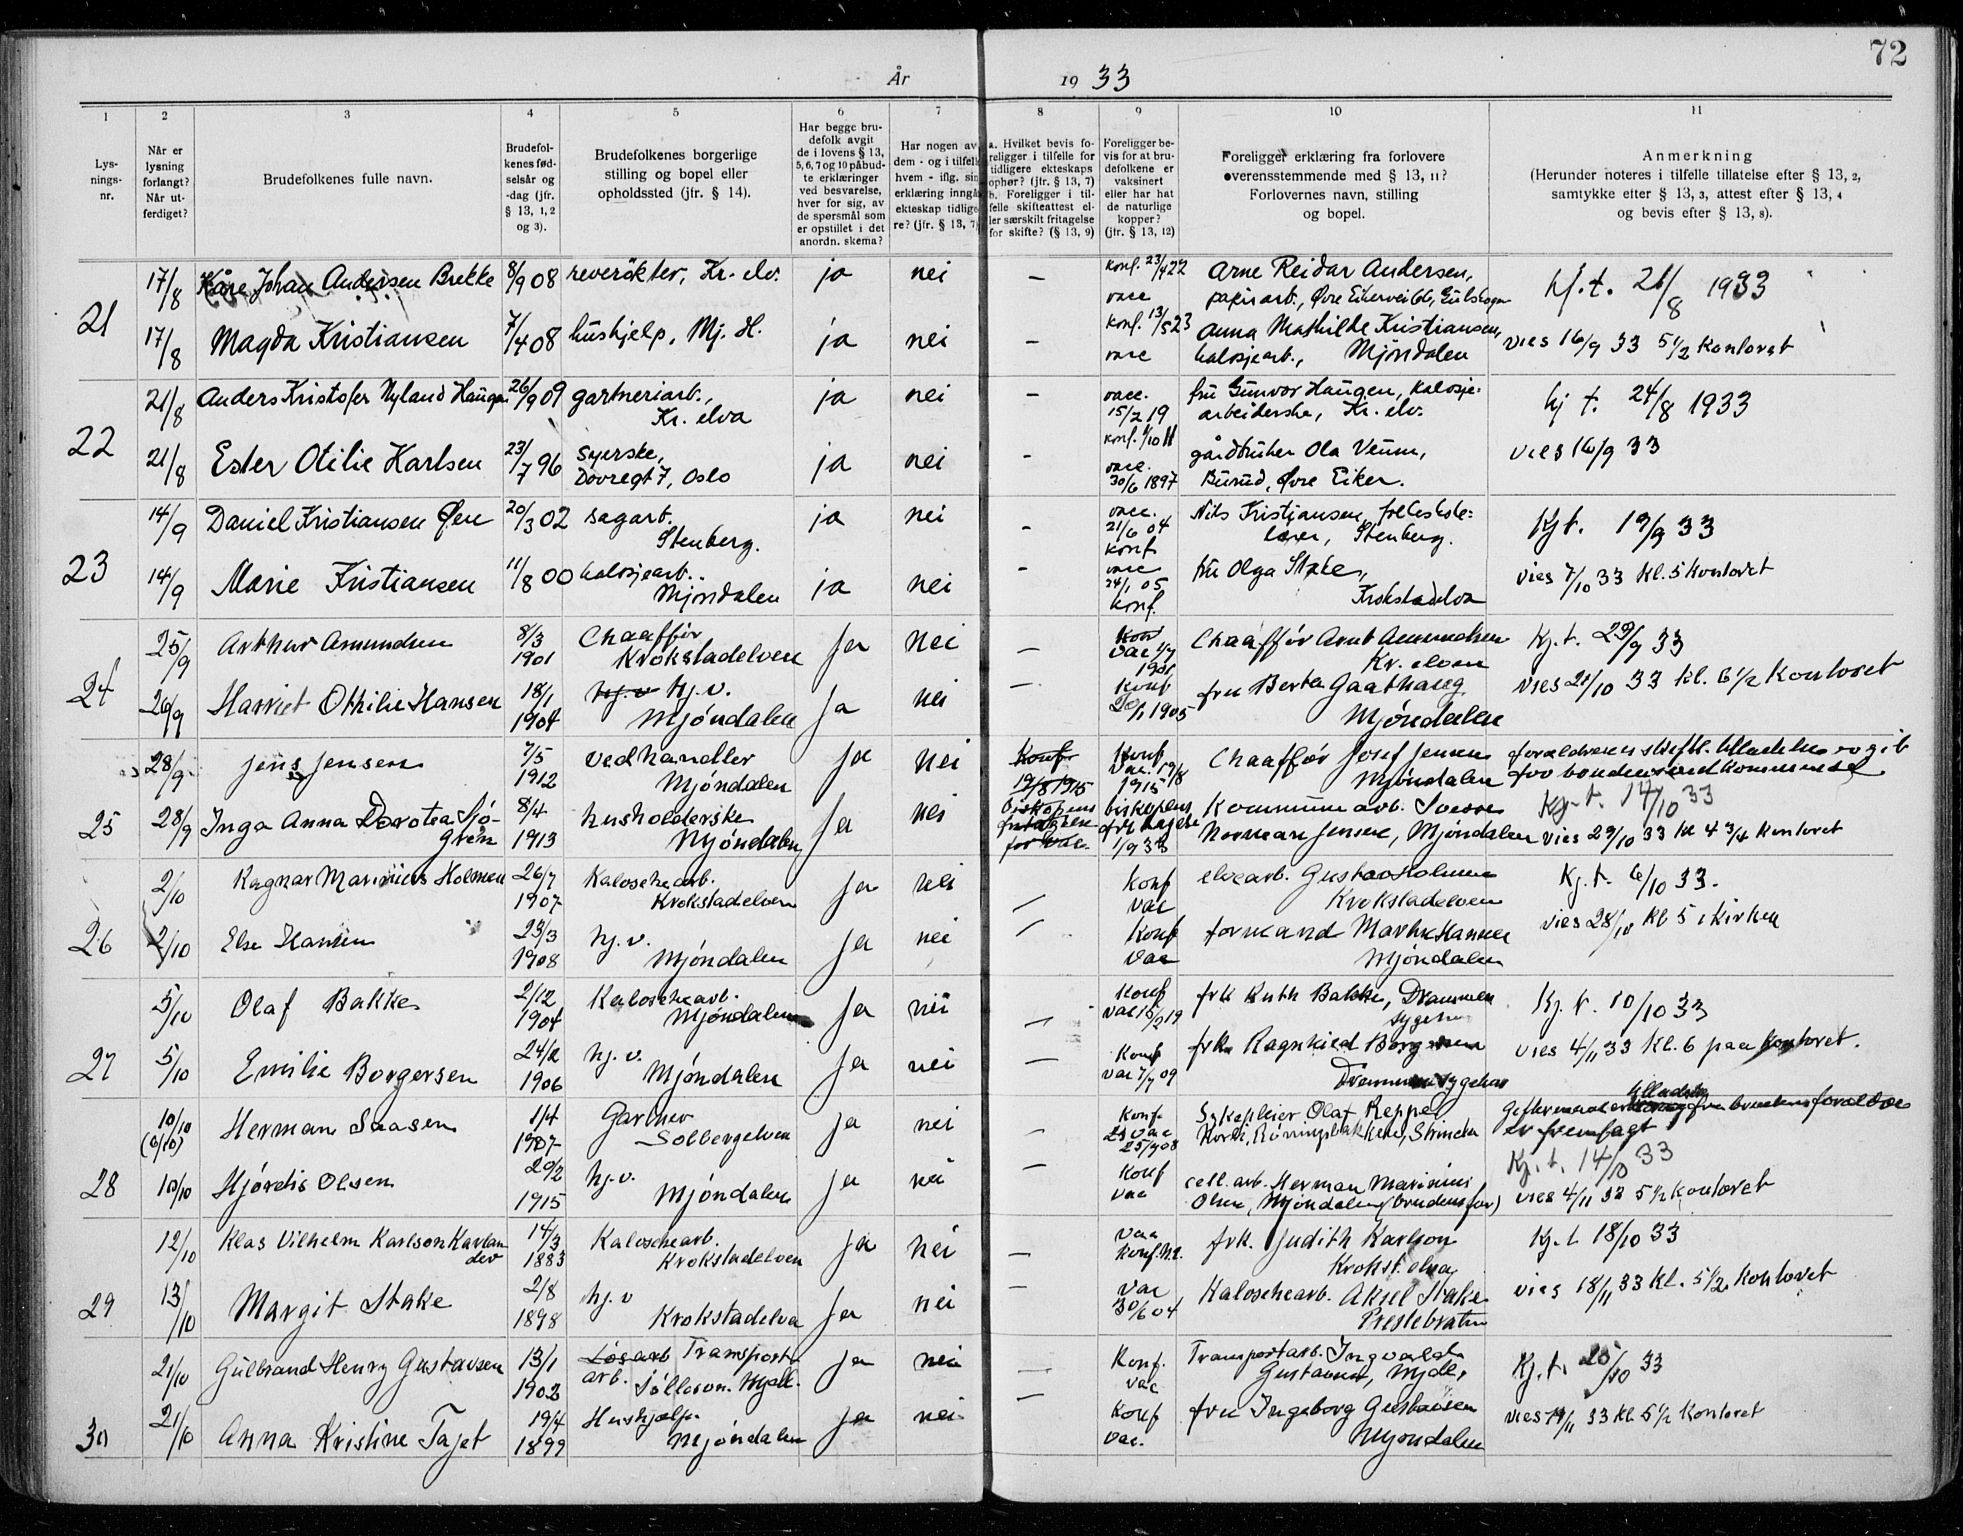 72
År 1933
1 2 3 4 5 6 7 8 9 10 11
Lys-
nings-
nr.
Når er
lysning
forlangt?
Når ut-
ferdiget?
Brudefolkenes fulle navn.
Brudefol-
kenes fød-
selsår og
-dag (jfr.
§ 13, 1, 2
og 3).
Brudefolkenes borgerlige
stilling og bopel eller
opholdssted (jfr. § 14).
Har begge bru-
defolk avgit
de i lovens § 13,
5, 6, 7 og 10 påbud-
te erklæringer
ved besvarelse,
hver for sig, av
de spørsmål som
er opstillet i det
anordn. skema?
Har nogen av
dem - og i tilfelle
hvem - iflg. sin
erklæring inngått
ekteskap tidlige-
re? (jfr. § 13, 7)
a. Hvilket bevis fo-
religger i tilfelle for
tidligere ekteskaps
ophør? (jfr. § 13, 7)
b. Foreligger i til-
felle skifteattest el-
ler særskilt fritagelse
for skifte? (§ 13, 9)
Foreligger be-
vis for at bru-
defolkene er
vaksinert
eller har hat
de naturlige
kopper?
(jfr. § 13, 12)
Foreligger erklæring fra forlovere
overensstemmende med § 13, 11?
Forlovernes navn, stilling
og bopel.
Anmerkning
(Herunder noteres i tilfelle tillatelse efter § 13, 2,
samtykke efter § 13, 3, attest efter § 13, 4
og bevis efter § 13, 8).
21
17/8 Kåre Johan Andersen Brekke 8/9 08 reverøkter, Kr. elv. ja nei — konf. 23/4 22 vacc Arne Reidar Andersen,
papirarb., Øvre Eikervei, Gulskogen
kj. t. 21/8 1933
17/8 Magda Kristiansen 7/4 08 hushjelp, Mj. H. ja nei — konf. 13/5 23 vacc Anna Mathilde Kristiansen,
kalosjearb., Mjøndalen
vies 16/9 33 5 1/2 kontoret
22
21/8 Anders Kristofer Nyland Haugen 26/9 09 gartneriarb.,
Kr. elva ja nei — vacc. 15/7 19 fru Gunvor Haugen, kalosje-
arbeiderske, Kr. elv.
kj t. 24/8 1933
21/8 Ester Otilie Karlsen 23/7 96 Syerske,
Dovregt 7, Oslo ja nei - konf. 1/10 11 vacc. 30/6 1897 gårdbruker Ola Veum,
Burud, Øvre Eiker.
vies 16/9 33
23
14/9 Daniel Kristiansen Øen 20/3 02 sagarb.
Stenberg. ja nei - vacc. 21/6 04 konf Nils Kristiansen, folkeskole-
lærer, Stenberg.
Kj t. 19/9 33
14/9 Marie Kristiansen 11/8 00 kalosjearb.
Mjøndalen ja nei - vacc 24/1 05 konf. fru Olga Stake,
Krokstadelva
vies 7/10 33 kl. 5 kontoret
24
25/9 Arthur Amundsen 8/3 1901 Chaaffør
Krokstadelven Ja nei — Konf Vac 1901 Chaaffør Arnt Amundsen
Kr. elven
Kj. t. 29/9 33
26/9 Harriet Othilie Hansen 18/1 1904 hj.v hj.v.
Mjøndalen Ja nei — Konf 20/1 1905 fru Berta Gaathaug
Mjøndalen
vies 21/10 33 kl. 6 1/2 Kontoret
25
28/9 Jens Jensen 7/5 1912 vedhandler
Mjøndalen Ja nei Konf 19/8 1915 Konf Vac. 19/8 1915 Chaaffør Josef Jensen
Mjøndalen
28/9 Inga Anna Dorotea Sjø-
gren 8/4 1913 husholderske
Mjøndalen Ja nei biskopens fritagelse for Vac. biskopens fritagelse 1/9 33 Kommunearb. Sverre
Norman Jensen, Mjøndalen
Kj. t. 14/10 33
vies 29/10 33 kl 4 3/4 Kontoret
26
2/10 Ragnar Marinius Holmen 26/7 1907 Kaloschearb.
Krokstadelven Ja nei — Konf Vac elvearb. Gustav Holmen
Krokstadelven
Kj. t. 6/10 33.
2/10 Else Hansen 23/3 1908 hj. v.
Mjøndalen Ja nei — Konf Vac formand Marius Hansen
Mjøndalen
vies 28/10 kl 5 i Kirken
27
5/10 Olaf Bakke 2/12 1904 Kaloschearb.
Mjøndalen Ja nei — Konf Vac 15/2 19 frk Ruth Bakke, Drammen
sygehus
Kj. t. 10/10 33
5/10 Emilie Borgersen 24/2 1906 hj. v.
Mjøndalen Ja nei — Konf Vac 7/7 09 frk. Ragnhild Borgersen
Drammen sygehus
vies 4/11 33 kl. 6 paa kontoret.
28
10/10 (6/10) Herman Saasen 1/4 1907 Gartner
Solbergelven Ja nei — Konf Vac 25/9 08 Sykepleier Olaf Reppe
Strinda
tilladelse fra brudens forældre
er fremlagt
Kj. t. 14/10 33
10/10 Hjørdis Olsen 20/2 1915 hj.v.
Mjøndalen Ja nei — Konf Vac cell. arb. Herman Marinius
Olsen, Mjøndalen (brudens far)
vies 4/11 33 5 1/2 Kontoret
29
12/10 Klas Vilhelm Karlson Karlan
der 14/3 1883 Kaloschearb.
Krokstadelven Ja nei — Vac Konf. frk. Judith Karlson
Krokst. elva
Kj. t 18/10 33
13/10 Margit Stake 2/8 1898 hj. v
Krokstadelva Ja nei — Vac 30/6 04 Kaloschearb. Aksel Stake
Prestebraten
vies 18/11 33 kl. 5 1/2 kontoret
30
21/10 Gulbrand Henry Gustavsen 13/1 1902 Løsarb Transport-
arb. Mjdl. Ja nei — Konf. Vac Transportarb. Ingvald
Gustavsen, Mjdl.
Kj. t. 25/10 33
21/10 Anna Kristine Tajet 19/4 1899 Hushjelp
Mjøndalen Ja nei — Konf Vac. fru Ingeborg Gustavsen
Mjøndalen
vies 33 kl. 5 1/2 Kontoret